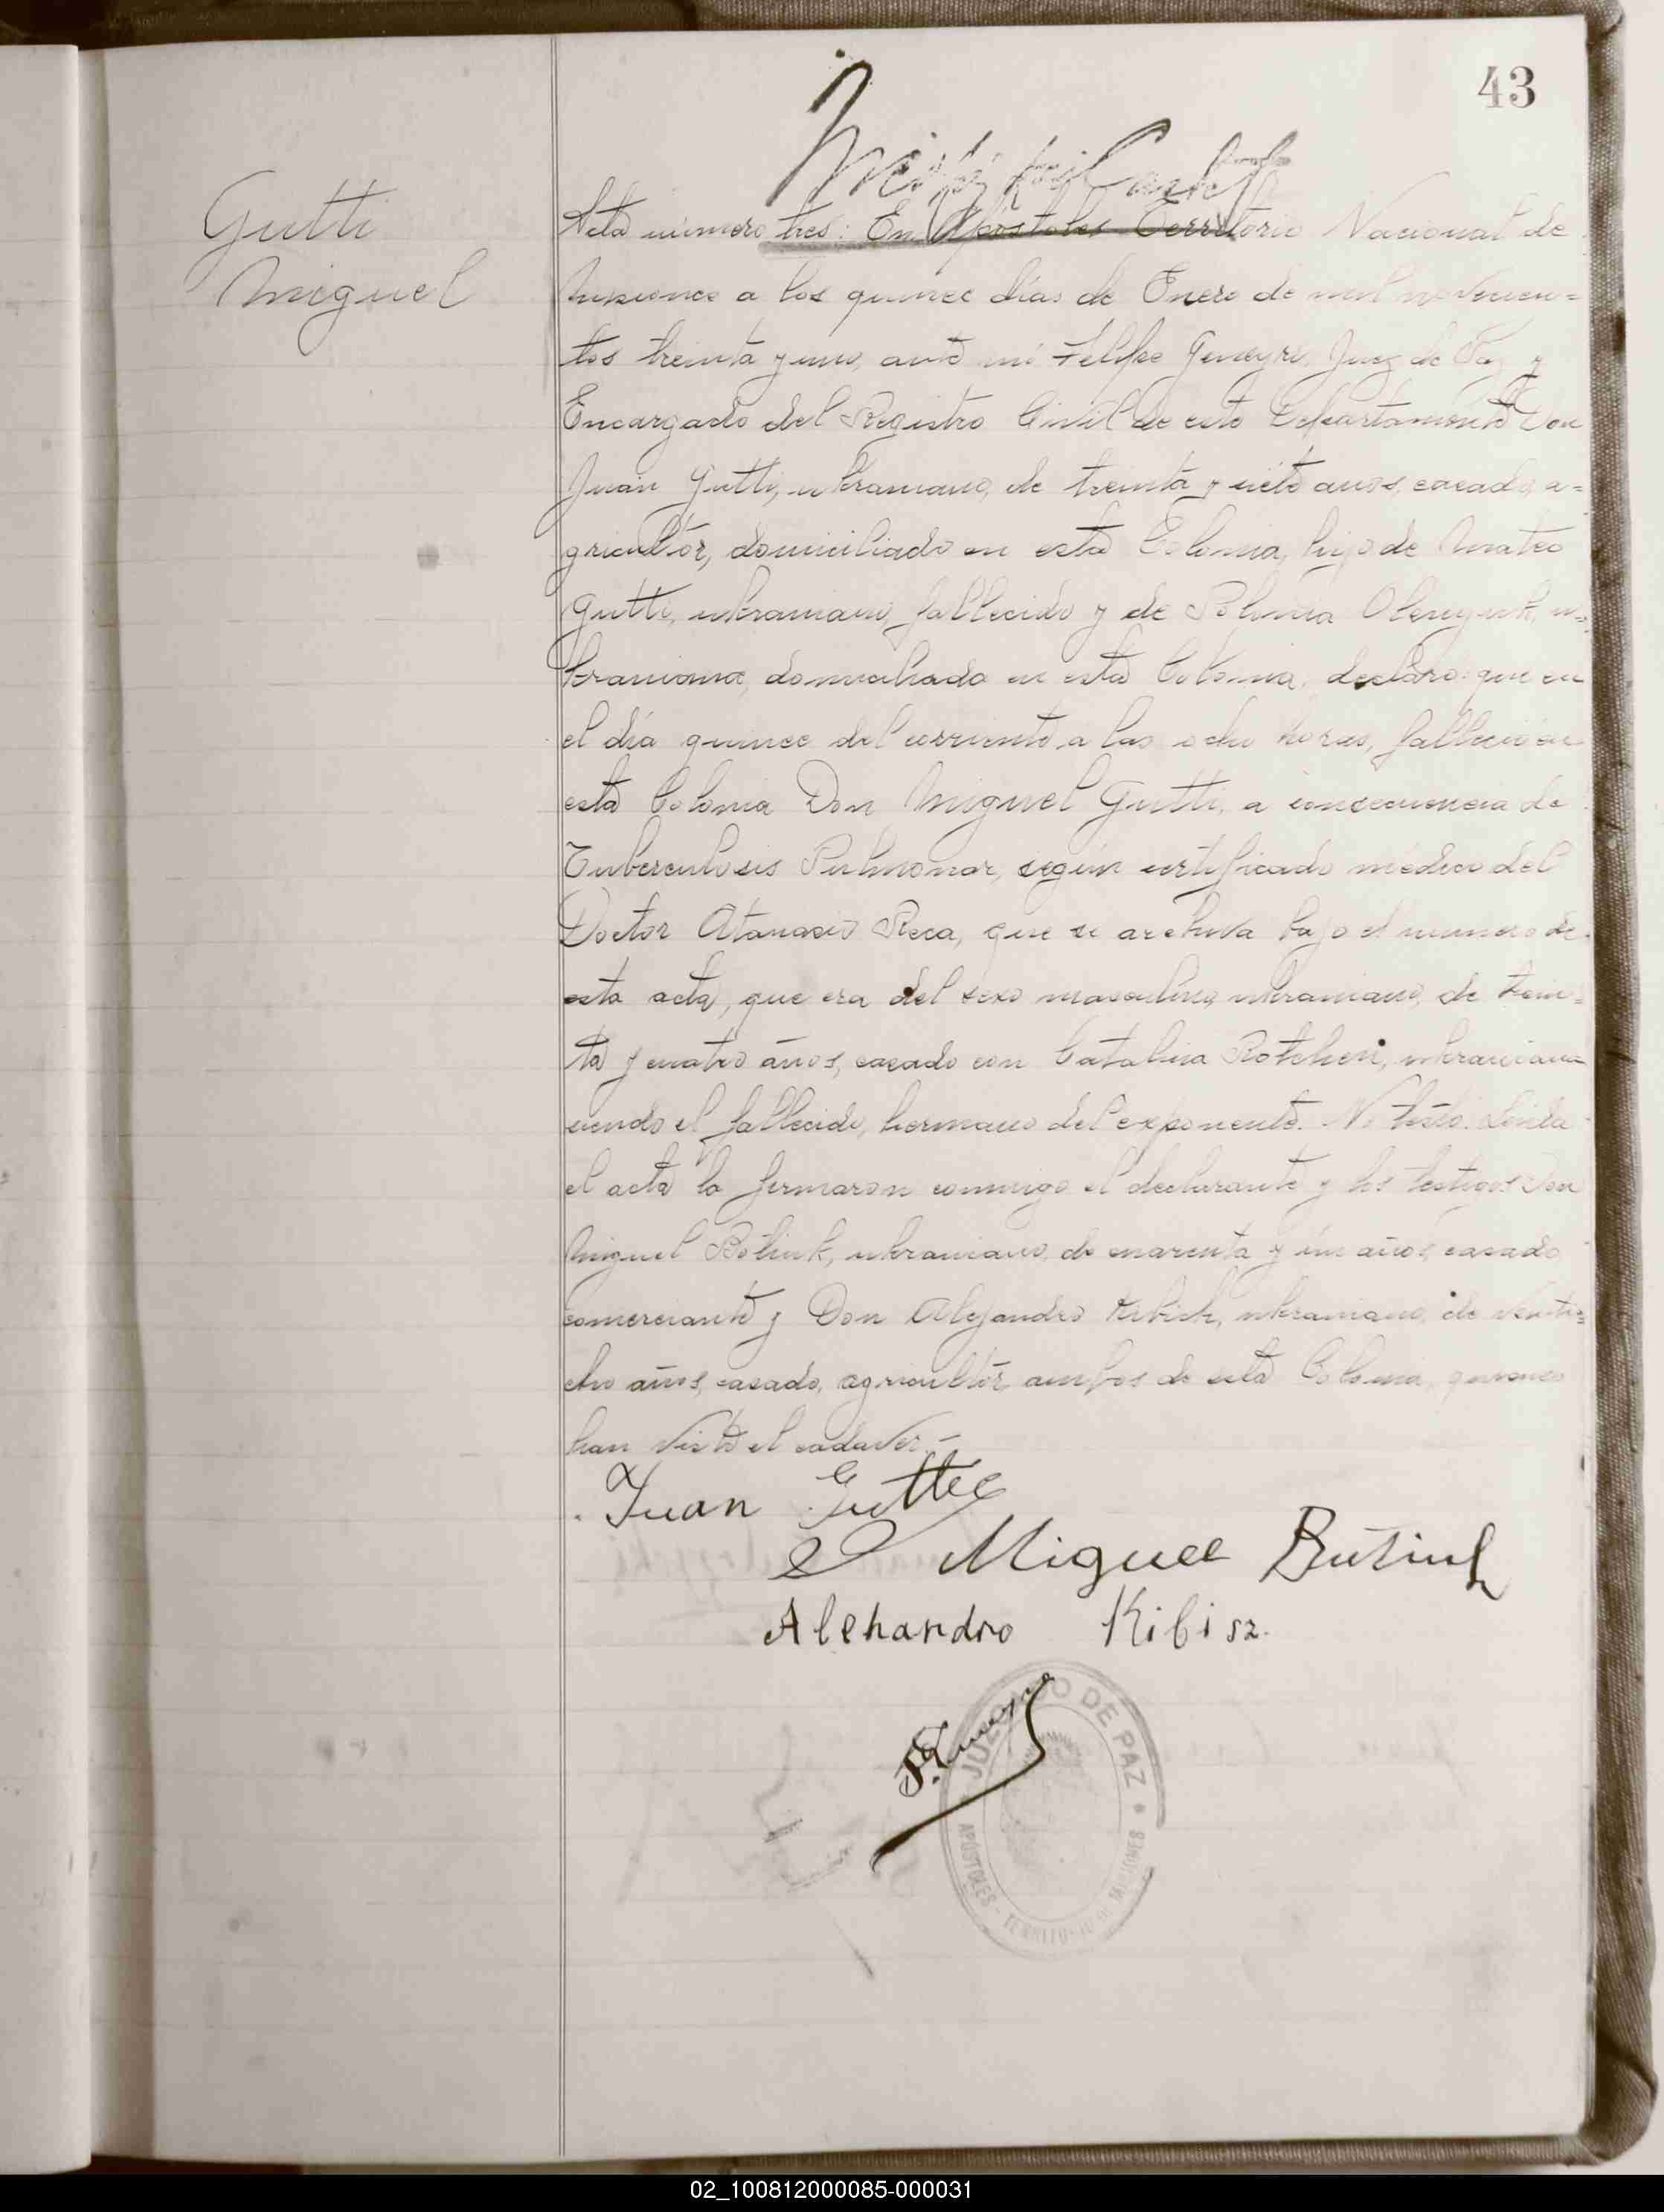 43
Gutti
Miguel
Acta número tres: En Apóstoles Territorio Nacional de
Misiones a los quince días de Enero de mil novecien=
tos treinta y uno, ante mí Felipe Geneyro, Juez de Paz y
Encargado del Registro Civil de este Departamento Don
Juan Gutti, ukraniano, de treinta y siete años, casado, a=
gricultor, domiciliado en esta Colonia, hijo de Mateo
Gutti, ukraniano, fallecido y de Polonia u=
kraniana, domiciliada en esta Colonia, declaró: que en
el día quince del corriente a las ocho horas, falleció en
esta Colonia Don Miguel Gutti, a consecuencia de
Tuberculosis Pulmonar, según certificado médico del
Doctor Atanasio Reca, que se archiva bajo el número de
esta acta, que era del sexo masculino, ukraniano, de trein=
ta y cuatro años, casado con Catalina ukraniana
siendo el fallecido, hermano del exponente. No testó. Leída
el acta la firmaron conmigo el declarante y los testigos Don
Miguel Botiuk, ukraniano, de cuarenta y un años, casado,
comerciante y Don Alejandro Kibich, ukraniano, de veinti=
cho años, casado, agricultor, ambos de esta Colonia, quienes
han visto el cadaver.-
Juan Guttec
Miguel Butiuk
Alehandro Kibisz.
JUZGADO DE PAZ
APÓSTOLES - TERRITORIO DE MISIONES
02_100812000085-000031